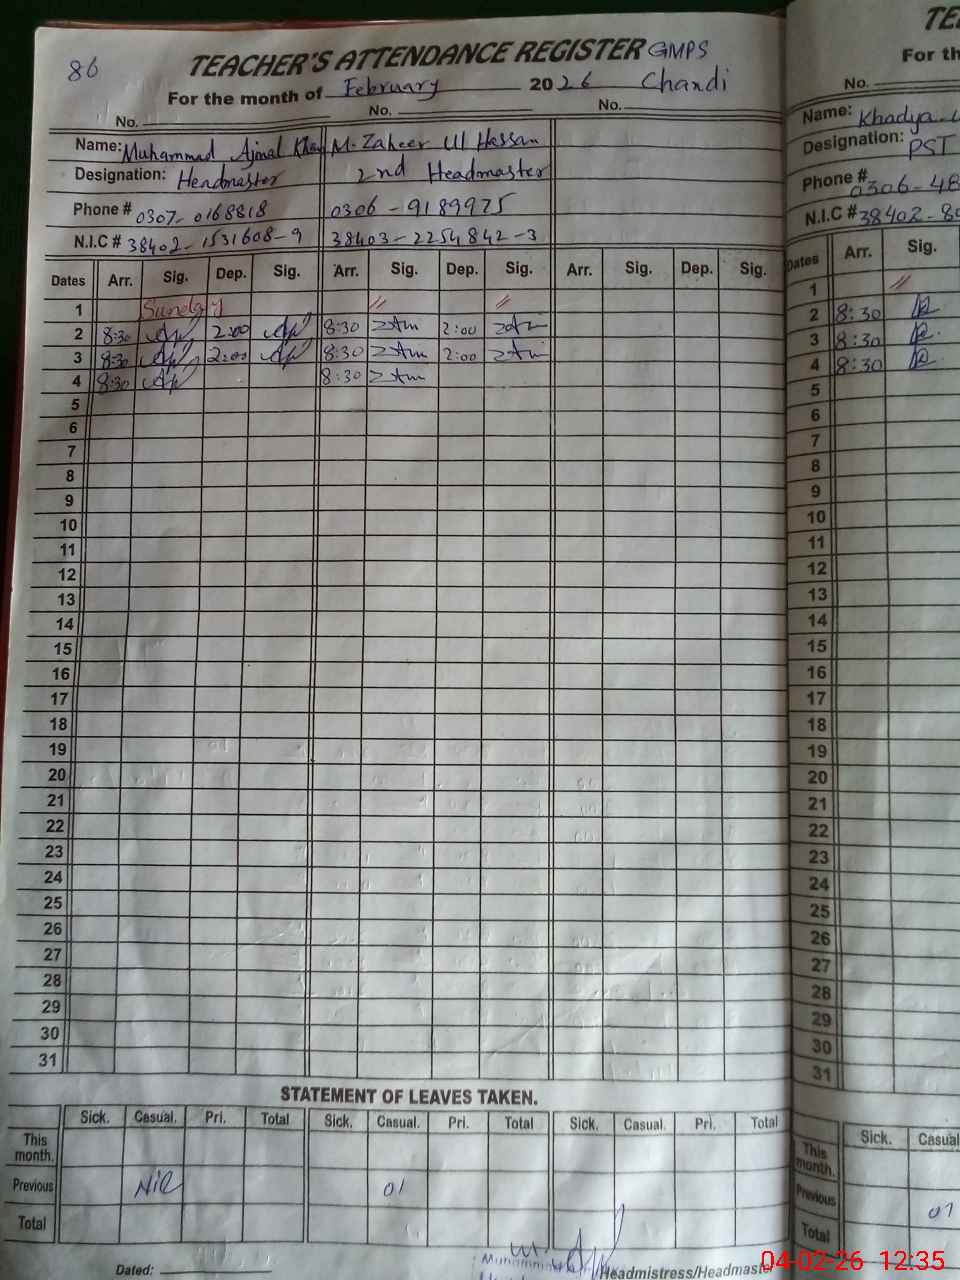 86
TEACHER'S ATTENDANCE REGISTER GMPS
For the month of February 2026 Chandi
No. No. No.
Name: Muhammad Ajmal Khan M. Zaheer Ul Hassan
Designation: Headmaster 2nd Headmaster
Phone # 0307-0168818 0306-9189975
N.I.C # 38402-1531608-9 38403-2254842-3
Dates Arr. Sig. Dep. Sig. Arr. Sig. Dep. Sig. Arr. Sig. Dep. Sig.
1 Sunday " "
2 8:30 2:00 8:30 2:00
3 8:30 2:00 8:30 2:00
4 8:30 8:30
5
6
7
8
9
10
11
12
13
14
15
16
17
18
19
20
21
22
23
24
25
26
27
28
29
30
31
STATEMENT OF LEAVES TAKEN.
Sick. Casual. Pri. Total Sick. Casual. Pri. Total Sick. Casual. Pri. Total
This month.
Previous Nil 01
Total
Dated: Headmistress/Headmaster
For th
No.
Name: Khadya
Designation: PST
Phone # 0306-48
N.I.C # 38402-80
Dates Arr. Sig.
1 "
2 8:30
3 8:30
4 8:30
5
6
7
8
9
10
11
12
13
14
15
16
17
18
19
20
21
22
23
24
25
26
27
28
29
30
31
Sick. Casual
This month.
Previous 01
Total
04-02-26 12:35